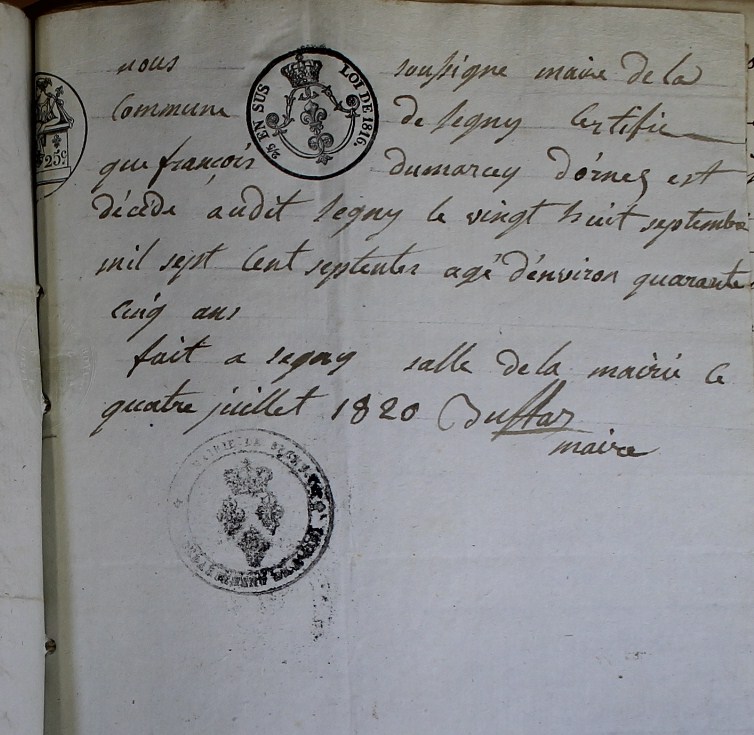 nous soussigne maire de la
Commune de Segny Certifie
que françois dumarcey d'órnez est
décéde audit Segny le vingt huit septembre
mil sept Cent septentes agé d'énviron quarante
cinq ans
fait a segny salle de la mairie ce
quatre juillet 1820
maire
2/5 EN SUS LOI DE 1816.
25c
MAIRIE DE